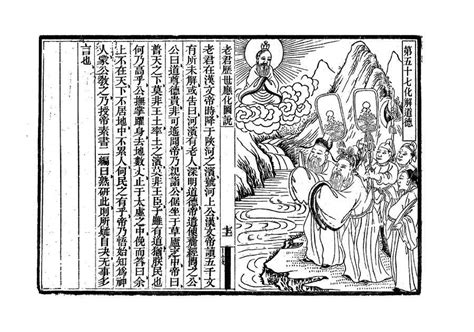 第五十七化解道德
老君歷世應化圖說
老君在漢文帝時降于陝河之濱號河上公漢文帝讀五千文
有所未解或告曰河濱有老人深明道德帝遣使齎經問之公
公曰道尊德貴非可遙聞帝乃親詣公倨坐于草廬之中帝曰
普天之下莫非王土率土之濱莫非王臣子雖有道猶朕民也
何乃高乎公撫掌躍身去地數丈止于太虛之中俛而答曰余
上不在天下不居地中不累人何民之有乎帝乃悟始知為神
人 公教之乃授帝素書二編曰熟研此則所疑自决无事多
言也